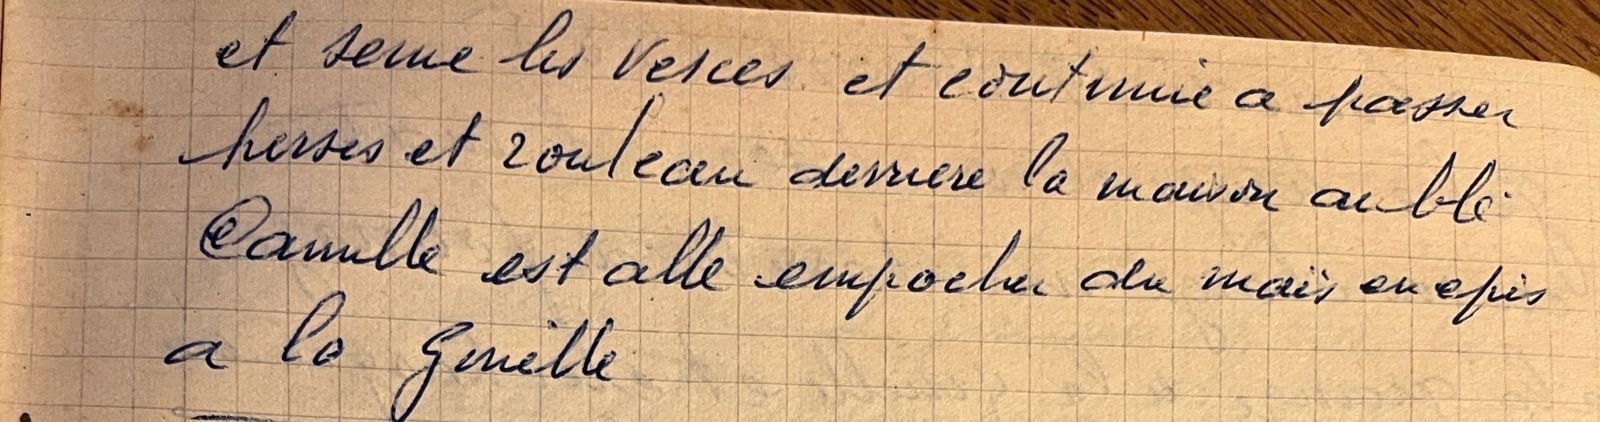 et seme les vesces et continue a passer
herses et rouleau derriere la maison au blé
Camille est alle empocher du maïs en epis
a la